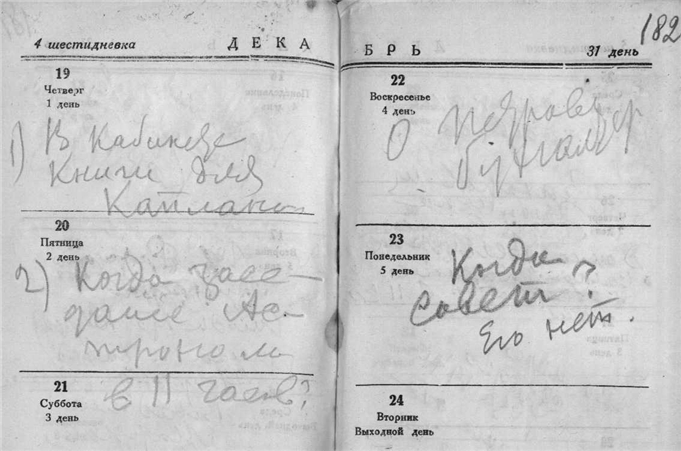 182
4 шестидневка ДЕКА
БРЬ 31 день
19
Четверг
1 день
1) В кабинете
книги для
Каплана
20
Пятница
2 день
2) Когда засе-
дание Ас-
троном
21
Суббота
3 день
в 11 часов?
22
Воскресенье
4 день
О
бухгалтер
23
Понедельник
5 день
Когда
Совет?
Его нет.
24
Вторник
Выходной день